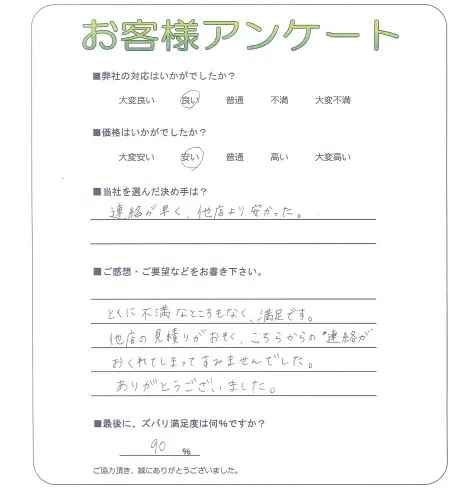 お客様アンケート
■弊社の対応はいかがでしたか？
大変良い 良い 普通 不満 大変不満
■価格はいかがでしたか？
大変安い 安い 普通 高い 大変高い
■当社を選んだ決め手は？
連絡が早く、他店より安かった。
■ご感想・ご要望などをお書き下さい。
とくに不満なところもなく、満足です。
他店の見積りがおそく、こちらからの連絡が
おくれてしまってすみませんでした。
ありがとうございました。
■最後に、ズバリ満足度は何％ですか？
90 ％
ご協力頂き、誠にありがとうございました。